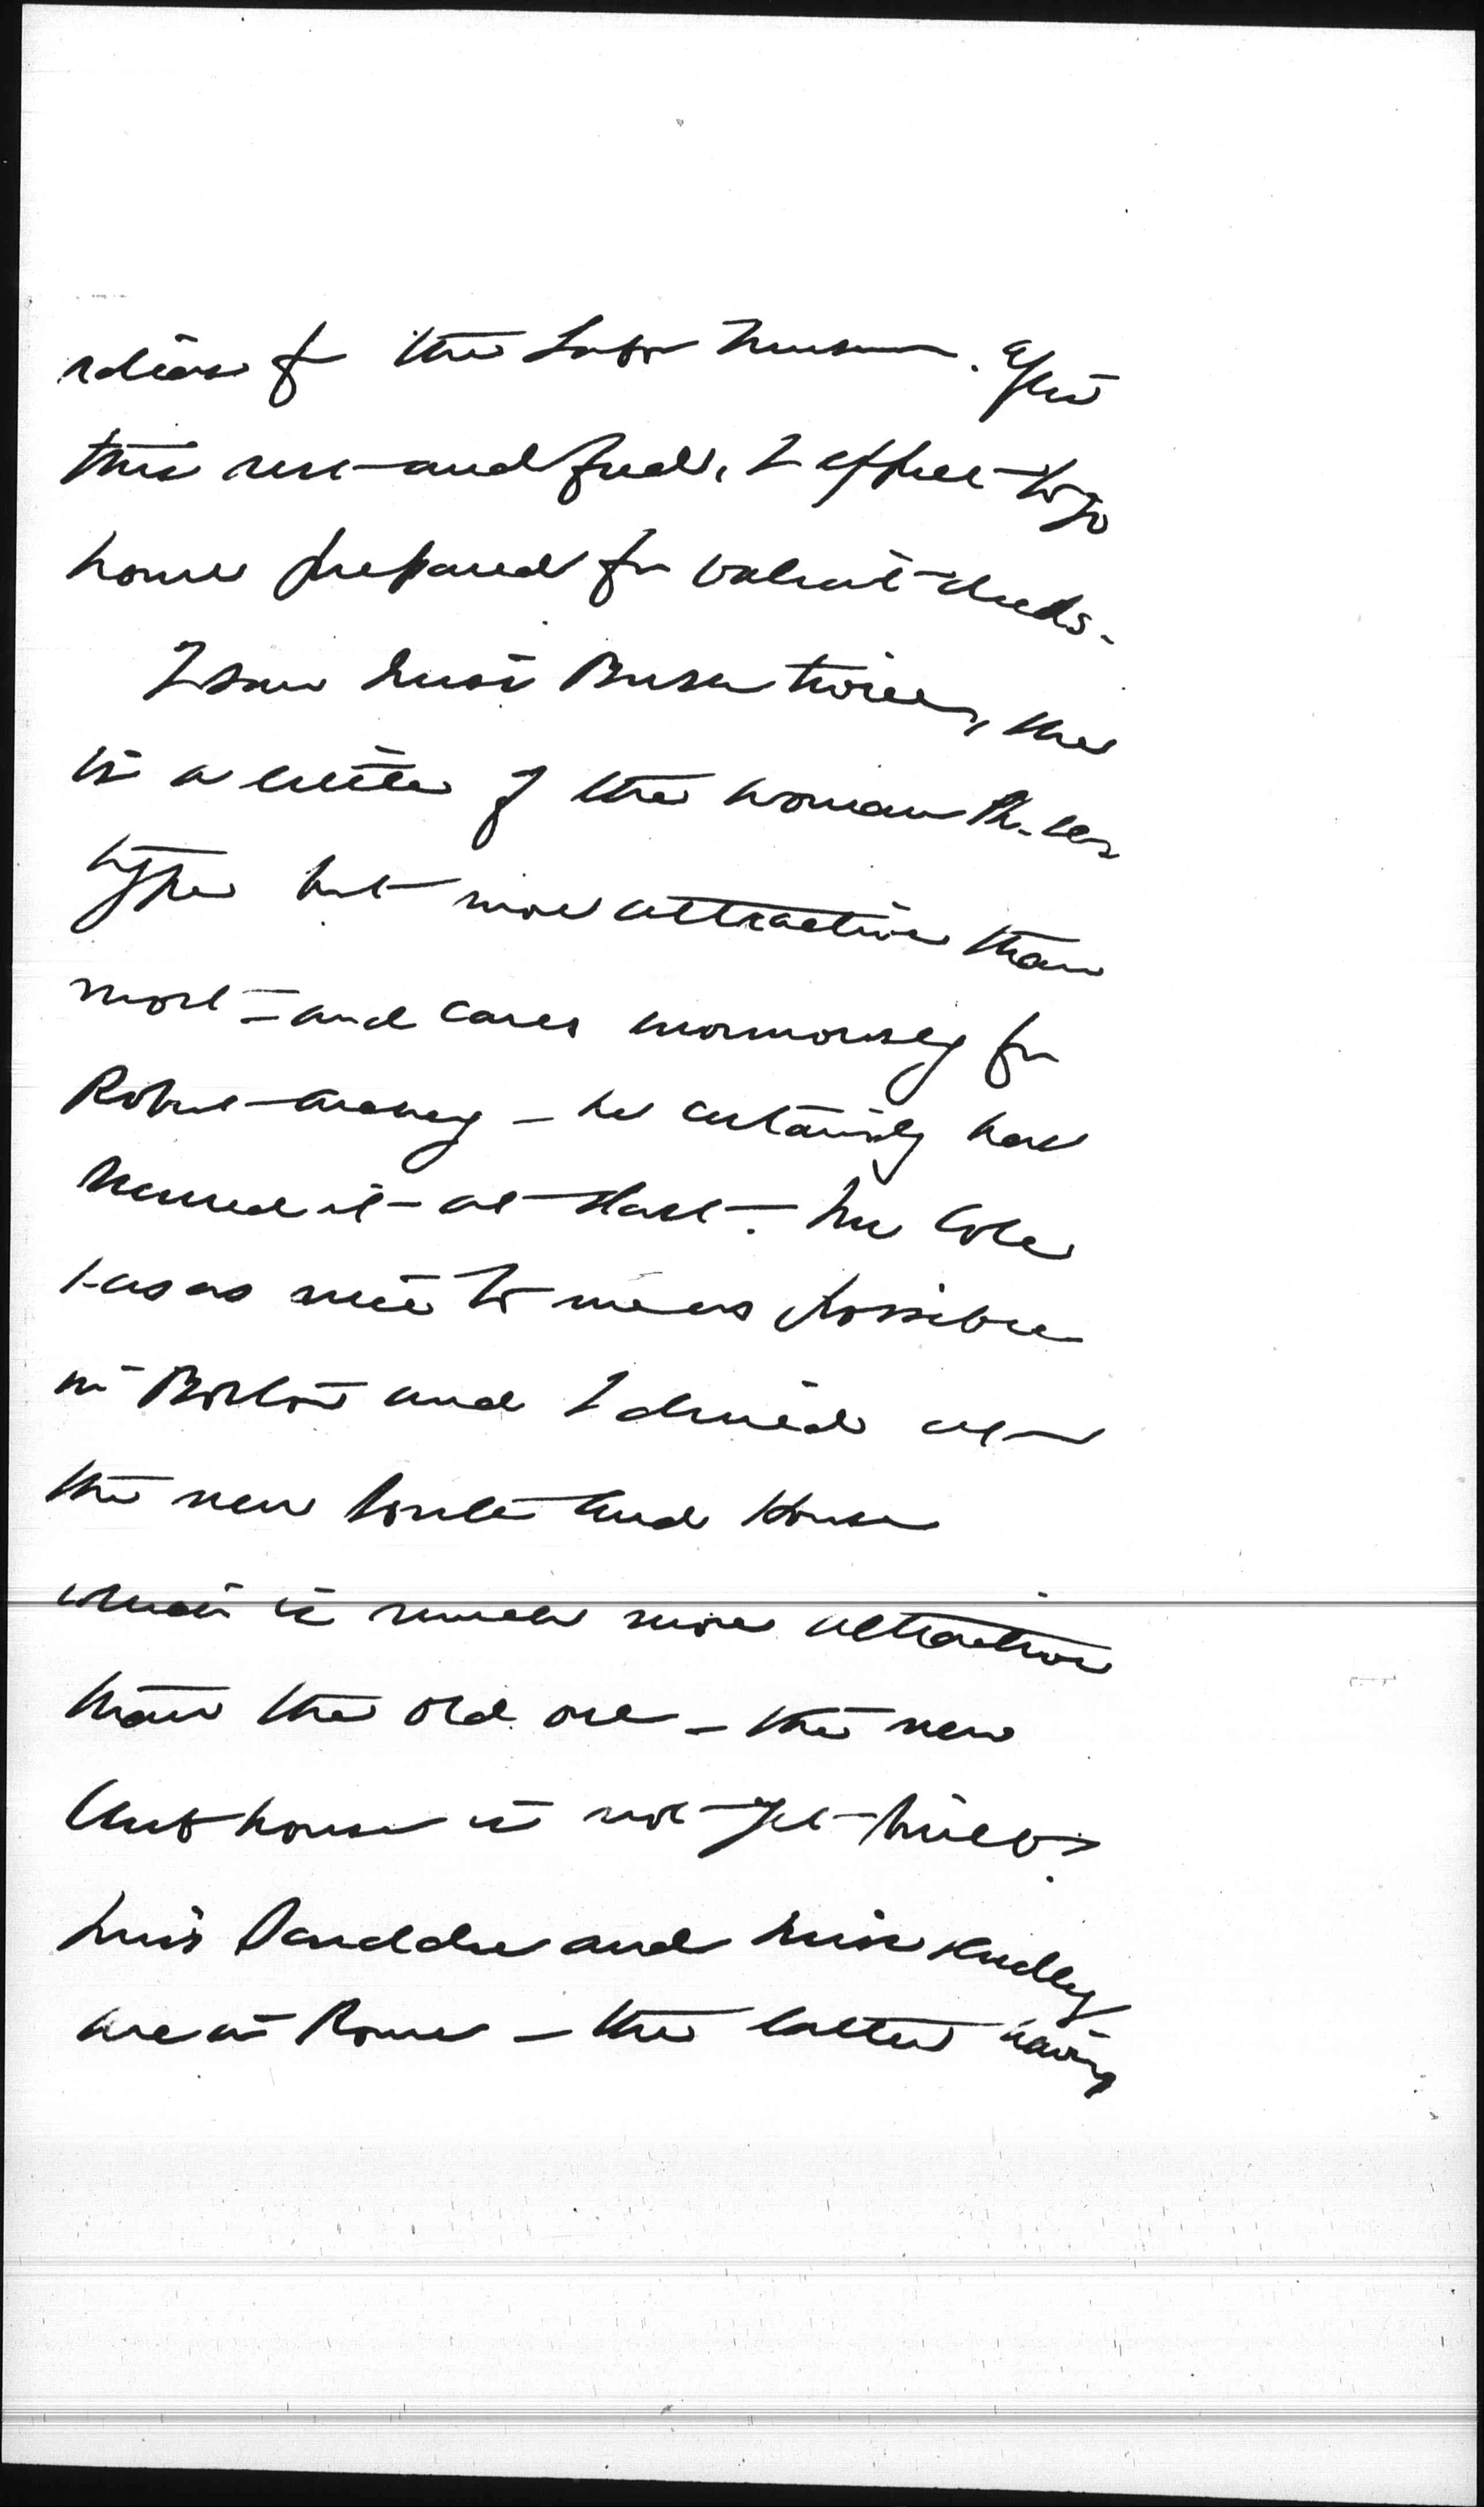 ideas for the Labor Museum. After
this rest and food, I expect to go
home prepared for valiant deeds.
I saw Miss Busch twice, she
is a little of the woman
type but more attractive than
most – and cares enormously for
Robert – he certainly has
it at last. Mrs Cole
was as nice to me as possible
in Boston and I dined at
the new South End House
which is much more attractive
than the old one – the new
Club house is not yet built.
Miss and Miss
are in Rome – the latter having